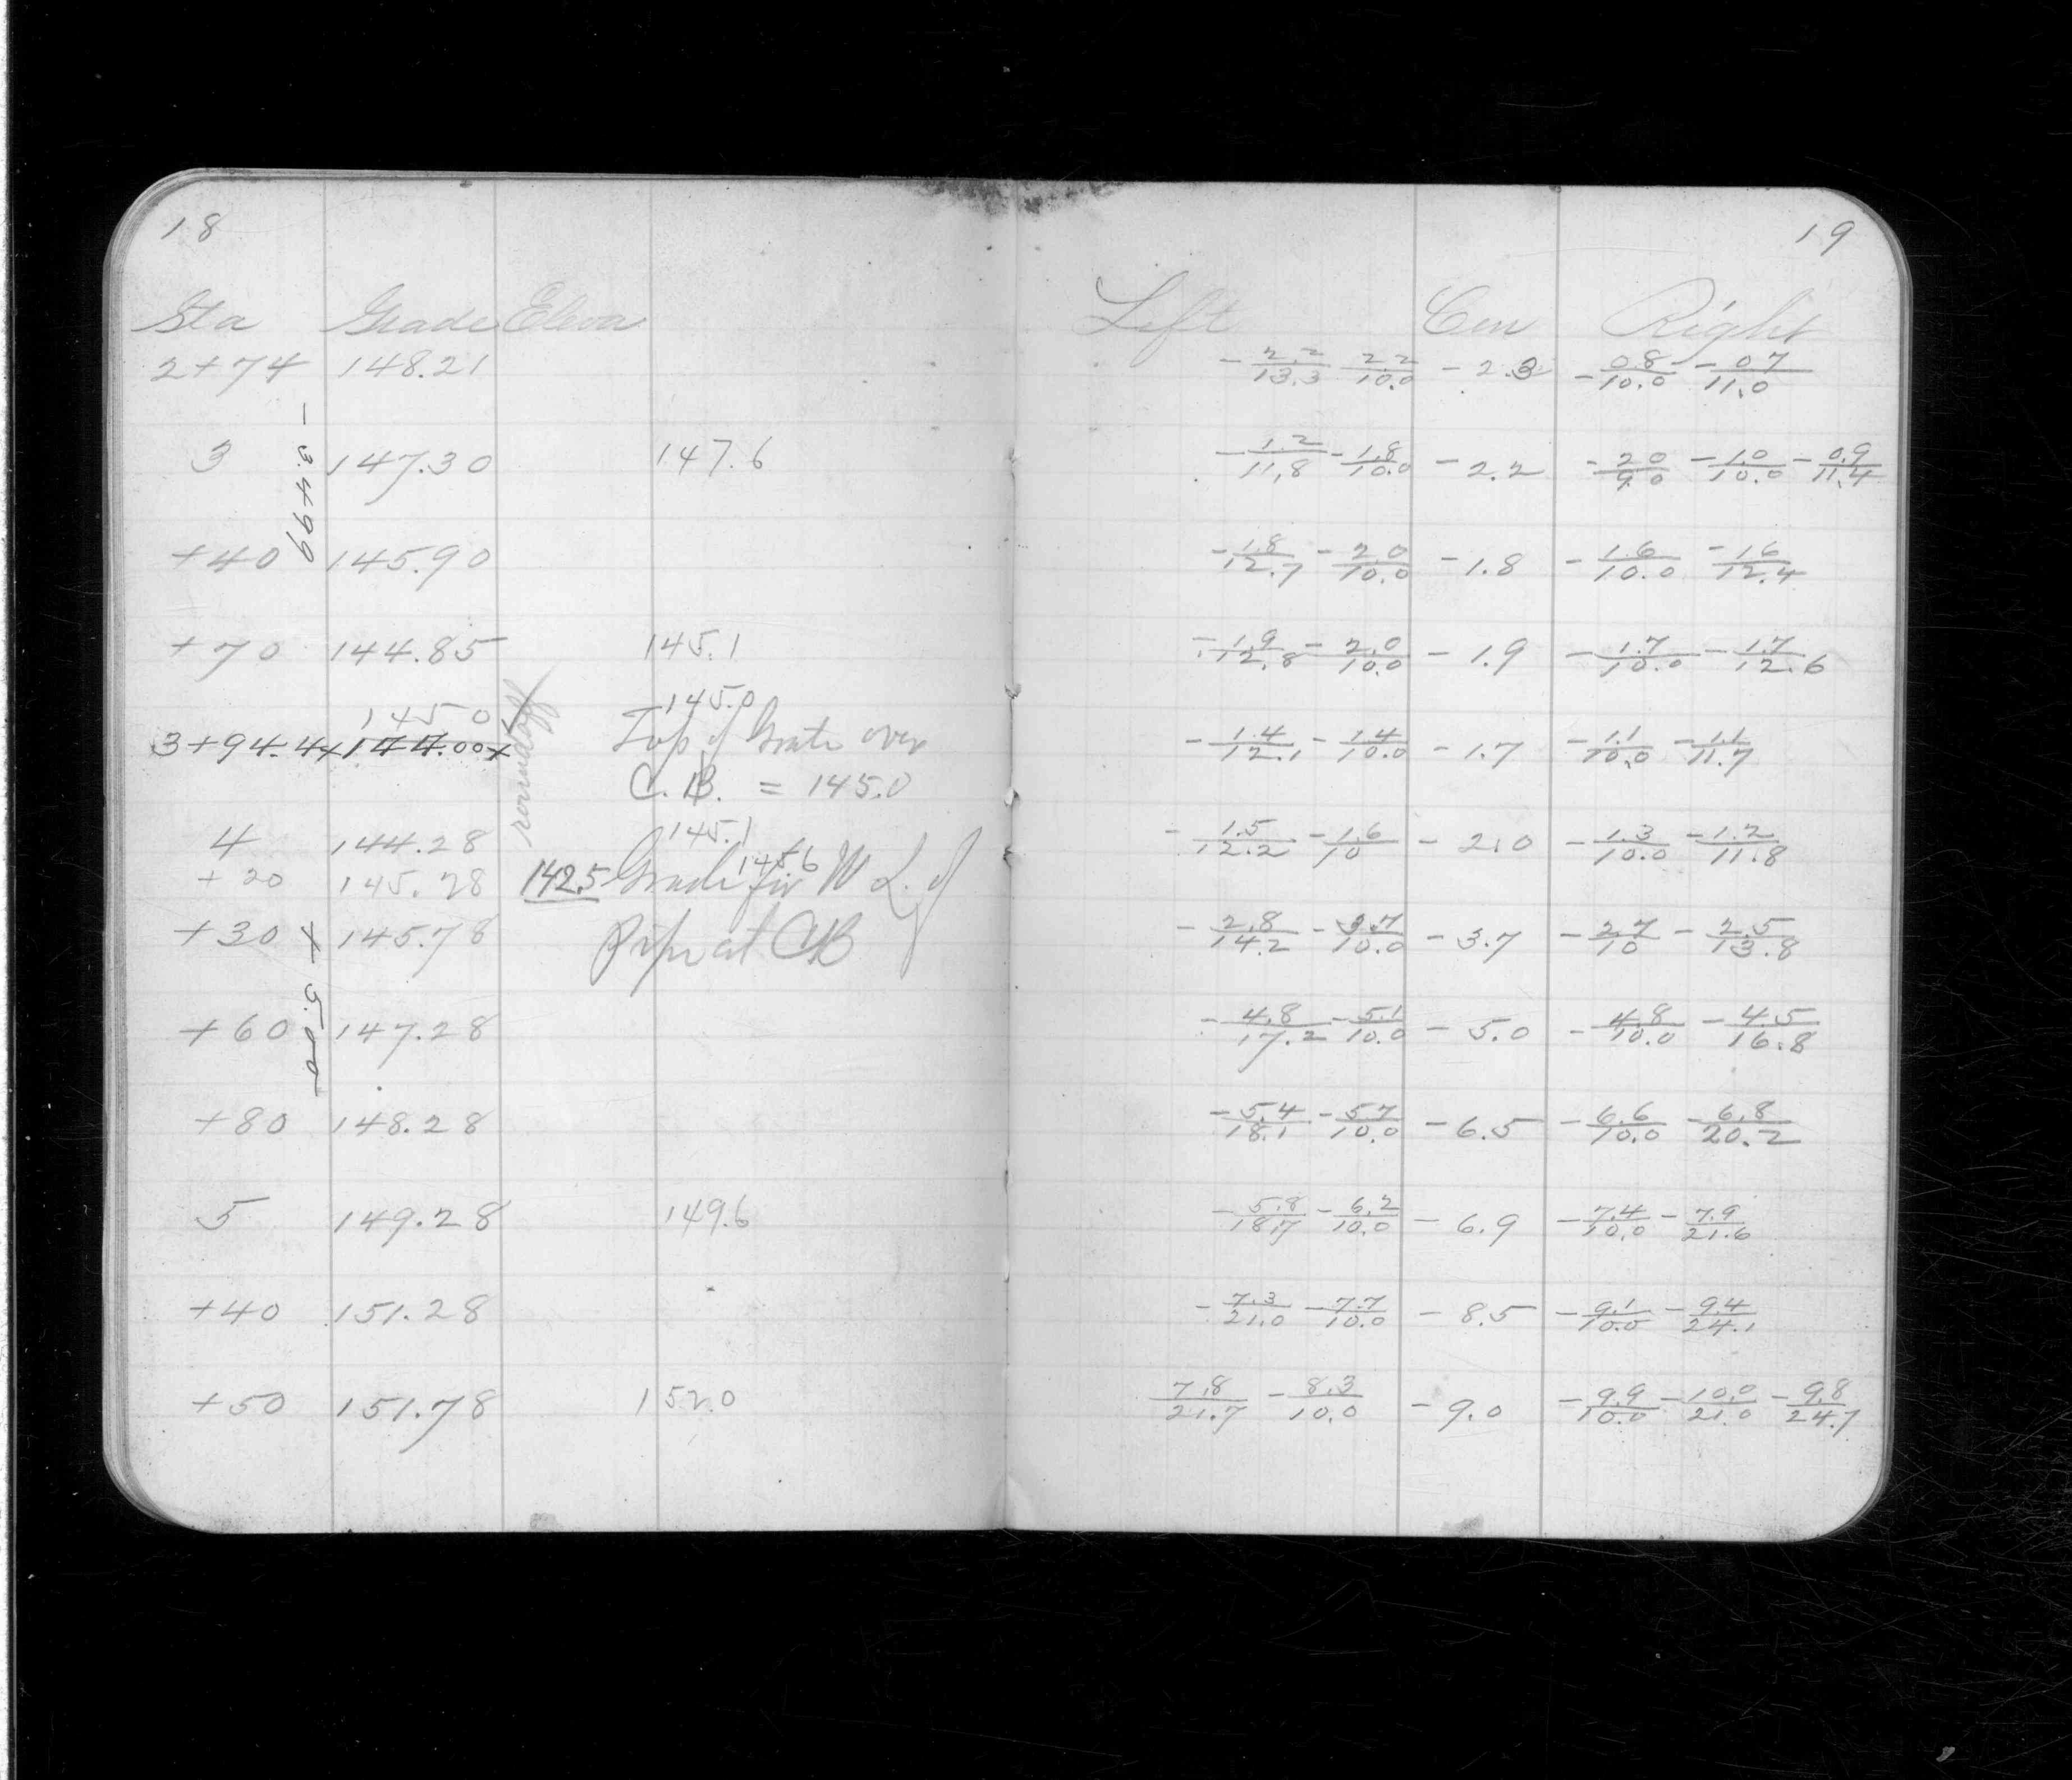 18
Sta Grade Eleva
2+74 148.21
- 3.499
3 147.30 147.6
+40 145.90
+70 144.85 145.1
roundoff
145.0 145.0
3+94.4 144.00 Top of Grate over
C.B. = 145.0
4 144.28 145.1
+20 145.28 145.6
142.5 Grade for W L. of
+30 145.78 Pipe at CB
+ 5.00
+60 147.28
+80 148.28
5 149.28 149.6
+40 151.28
+50 151.78 152.0
19
Left Cen Right
- 2.2/13.3 2.2/10.0 - 2.3 - 0.8/10.0 - 0.7/11.0
- 1.2/11.8 - 1.8/10.0 - 2.2 - 2.0/9.0 - 1.0/10.0 - 0.9/11.4
- 1.8/12.7 - 2.0/10.0 - 1.8 - 1.6/10.0 - 1.6/12.4
- 1.9/12.8 - 2.0/10.0 - 1.9 - 1.7/10.0 - 1.7/12.6
- 1.4/12.1 - 1.4/10.0 - 1.7 - 1.1/10.0 - 1.1/11.7
- 1.5/12.2 - 1.6/10 - 2.0 - 1.3/10.0 - 1.2/11.8
- 2.8/14.2 - 3.7/10.0 - 3.7 - 2.7/10 - 2.5/13.8
- 4.8/17.2 - 5.1/10.0 - 5.0 - 4.8/10.0 - 4.5/16.8
- 5.4/18.1 - 5.7/10.0 - 6.5 - 6.6/10.0 - 6.8/20.2
- 5.8/18.7 - 6.2/10.0 - 6.9 - 7.4/10.0 - 7.9/21.6
- 7.3/21.0 - 7.7/10.0 - 8.5 - 9.1/10.0 - 9.4/24.1
7.8/21.7 - 8.3/10.0 - 9.0 - 9.9/10.0 - 10.0/21.0 - 9.8/24.7